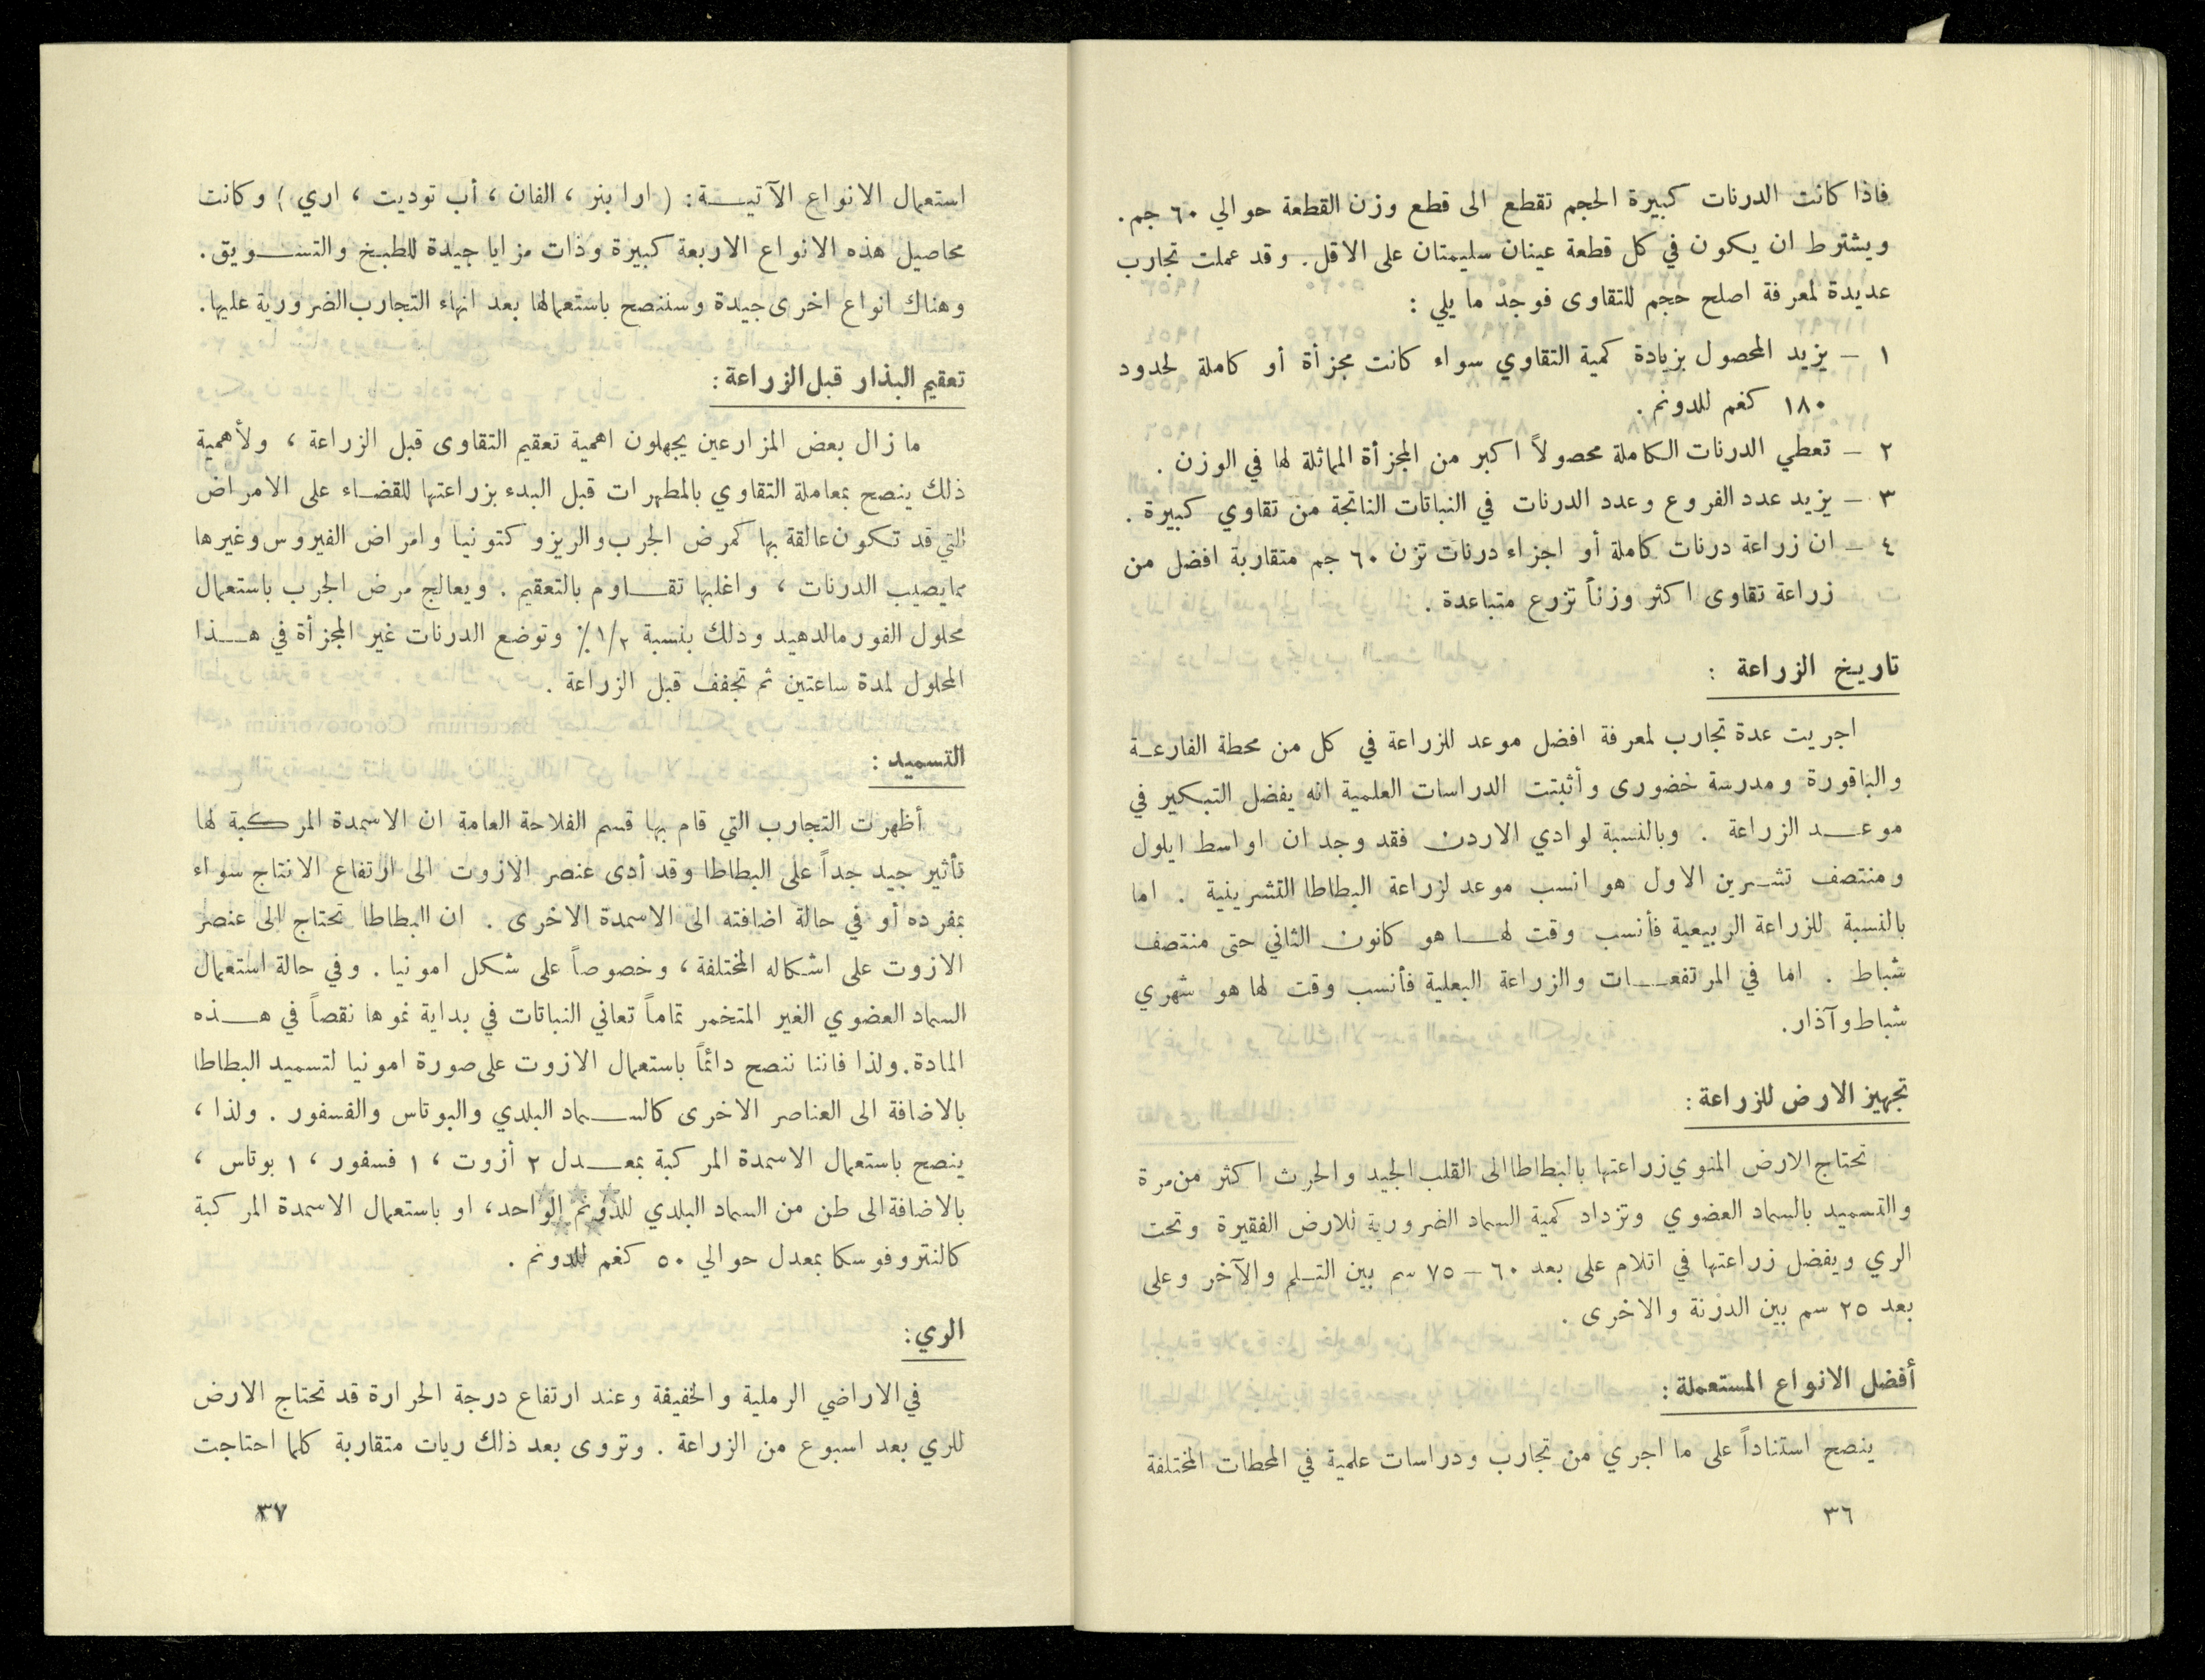 فاذا كانت الدرنات كبيرة الحجم تقطع الى قطع وزن القطعة حوالي ٦٠ جم.
ويشترط ان يكون في كل قطعة عينان سليمتان على الاقل. وقد عملت تجارب
عديدة لمعرفة اصلح حجم للتقاوى فوجد ما يلي :
١ – يزيد المحصول بزيادة كمية التقاوي سواء كانت مجزأة أو كاملة لحدود
١٨٠ كغم للدونم.
٢ – تعطي الدرنات الكاملة محصولاً اكبر من المجزأة المماثلة لها في الوزن .
٣ – يزيد عدد الفروع وعدد الدرنات في النباتات الناتجة من تقاوي كبيرة .
٤ – ان زراعة درنات كاملة أو اجزاء درنات تزن ٦٠ جم متقاربة افضل من
زراعة تقاوى اكثر وزناً تزرع متباعدة .
تاريخ الزراعة :
اجريت عدة تجارب لمعرفة افضل موعد للزراعة في كل من محطة الفارعـة
والباقورة ومدرسة خضورى وأثبتت الدراسات العلمية انه يفضل التبكير في
موعـــد الزراعة . وبالنسبة لوادي الاردن فقد وجد ان اواسط ايلول
ومنتصف تشـرين الاول هو انسب موعد لزراعة البطاطا التشرينية . اما
بالنسبة للزراعة الربيعية فأنسب وقت لهـا هو كانون الثاني حتى منتصف
شباط . اما في المرتفعــات والزراعة البعلية فأنسب وقت لها هو شهري
شباط وآذار.
تجهيز الارض للزراعة :
تحتاج الارض المنوي زراعتها بالبطاطا الى القلب الجيد والحرث اكثر من مرة
والتسميد بالسماد العضوي وتزداد كمية السماد الضرورية للارض الفقيرة وتحت
الري ويفضل زراعتها في اتلام على بعد ٦٠ – ٧٥ سم بين التـلم والآخر وعلى
بعد ٢٥ سم بين الدرنة والاخرى .
أفضل الانواع المستعملة :
ينصح استناداً على ما اجري من تجارب ودراسات علمية في المحطات المختلفة
٣٦
استعمال الانواع الآتيــة : ( ارا بنر ، الفان ، أب توديت ، اري ) وكانت
محاصيل هذه الانواع الاربعة كبيرة وذات مزايا جيدة للطبخ والتســويق.
وهناك انواع اخرى جيدة وسننصح باستعمالها بعد انهاء التجارب الضرورية عليها.
تعقيم البذار قبل الزراعة :
ما زال بعض المزارعين يجهلون اهمية تعقيم التقاوى قبل الزراعة ، ولأهمية
ذلك ينصح بمعاملة التقاوي بالمطهرات قبل البدء بزراعتها للقضـاء على الامراض
التي قد تكون عالقة بها كمرض الجرب والريزوكتونيا وامراض الفيروس وغيرها
مما يصيب الدرنات ، واغلبها تقـاوم بالتعقيم . ويعالج مرض الجرب باستعمال
محلول الفورمالدهيد وذلك بنسبة ١/٢٪ وتوضع الدرنات غير المجزأة في هــذا
المحلول لمدة ساعتين ثم تجفف قبل الزراعة .
التسميد :
أظهرت التجارب التي قام بها قسم الفلاحة العامة ان الاسمدة المركبة لها
تأثير جيد جداً على البطاطا وقد أدى عنصر الازوت الى ارتفاع الانتاج سواء
بمفرده أو في حالة اضافته الى الاسمدة الاخرى . ان البطاطا تحتاج الى عنصر
الازوت على اشكاله المختلفة ، وخصوصاً على شكل امونيا . وفي حالة استعمال
السماد العضوي الغير المتخمر تماماً تعاني النباتات في بداية نموها نقصاً في هــذه
المادة. ولذا فاننا ننصح دائماً باستعمال الازوت على صورة امونيا لتسميد البطاطا
بالاضافة الى العناصر الاخرى كالســماد البلدي والبوتاس والفسفور . ولذا ،
ينصح باستعمال الاسمدة المركبة بمعــدل ٢ أزوت ، ١ فسفور ، ١ بوتاس ،
بالاضافة الى طن من السماد البلدي للدونم الواحد، او باستعمال الاسمدة المركبة
كالنتروفوسكا بمعدل حوالي ٥٠ كغم للدونم .
الري :
في الاراضي الرملية والخفيفة وعند ارتفاع درجة الحرارة قد تحتاج الارض
للري بعد اسبوع من الزراعة . وتروى بعد ذلك ريات متقاربة كلما احتاجت
٣٧